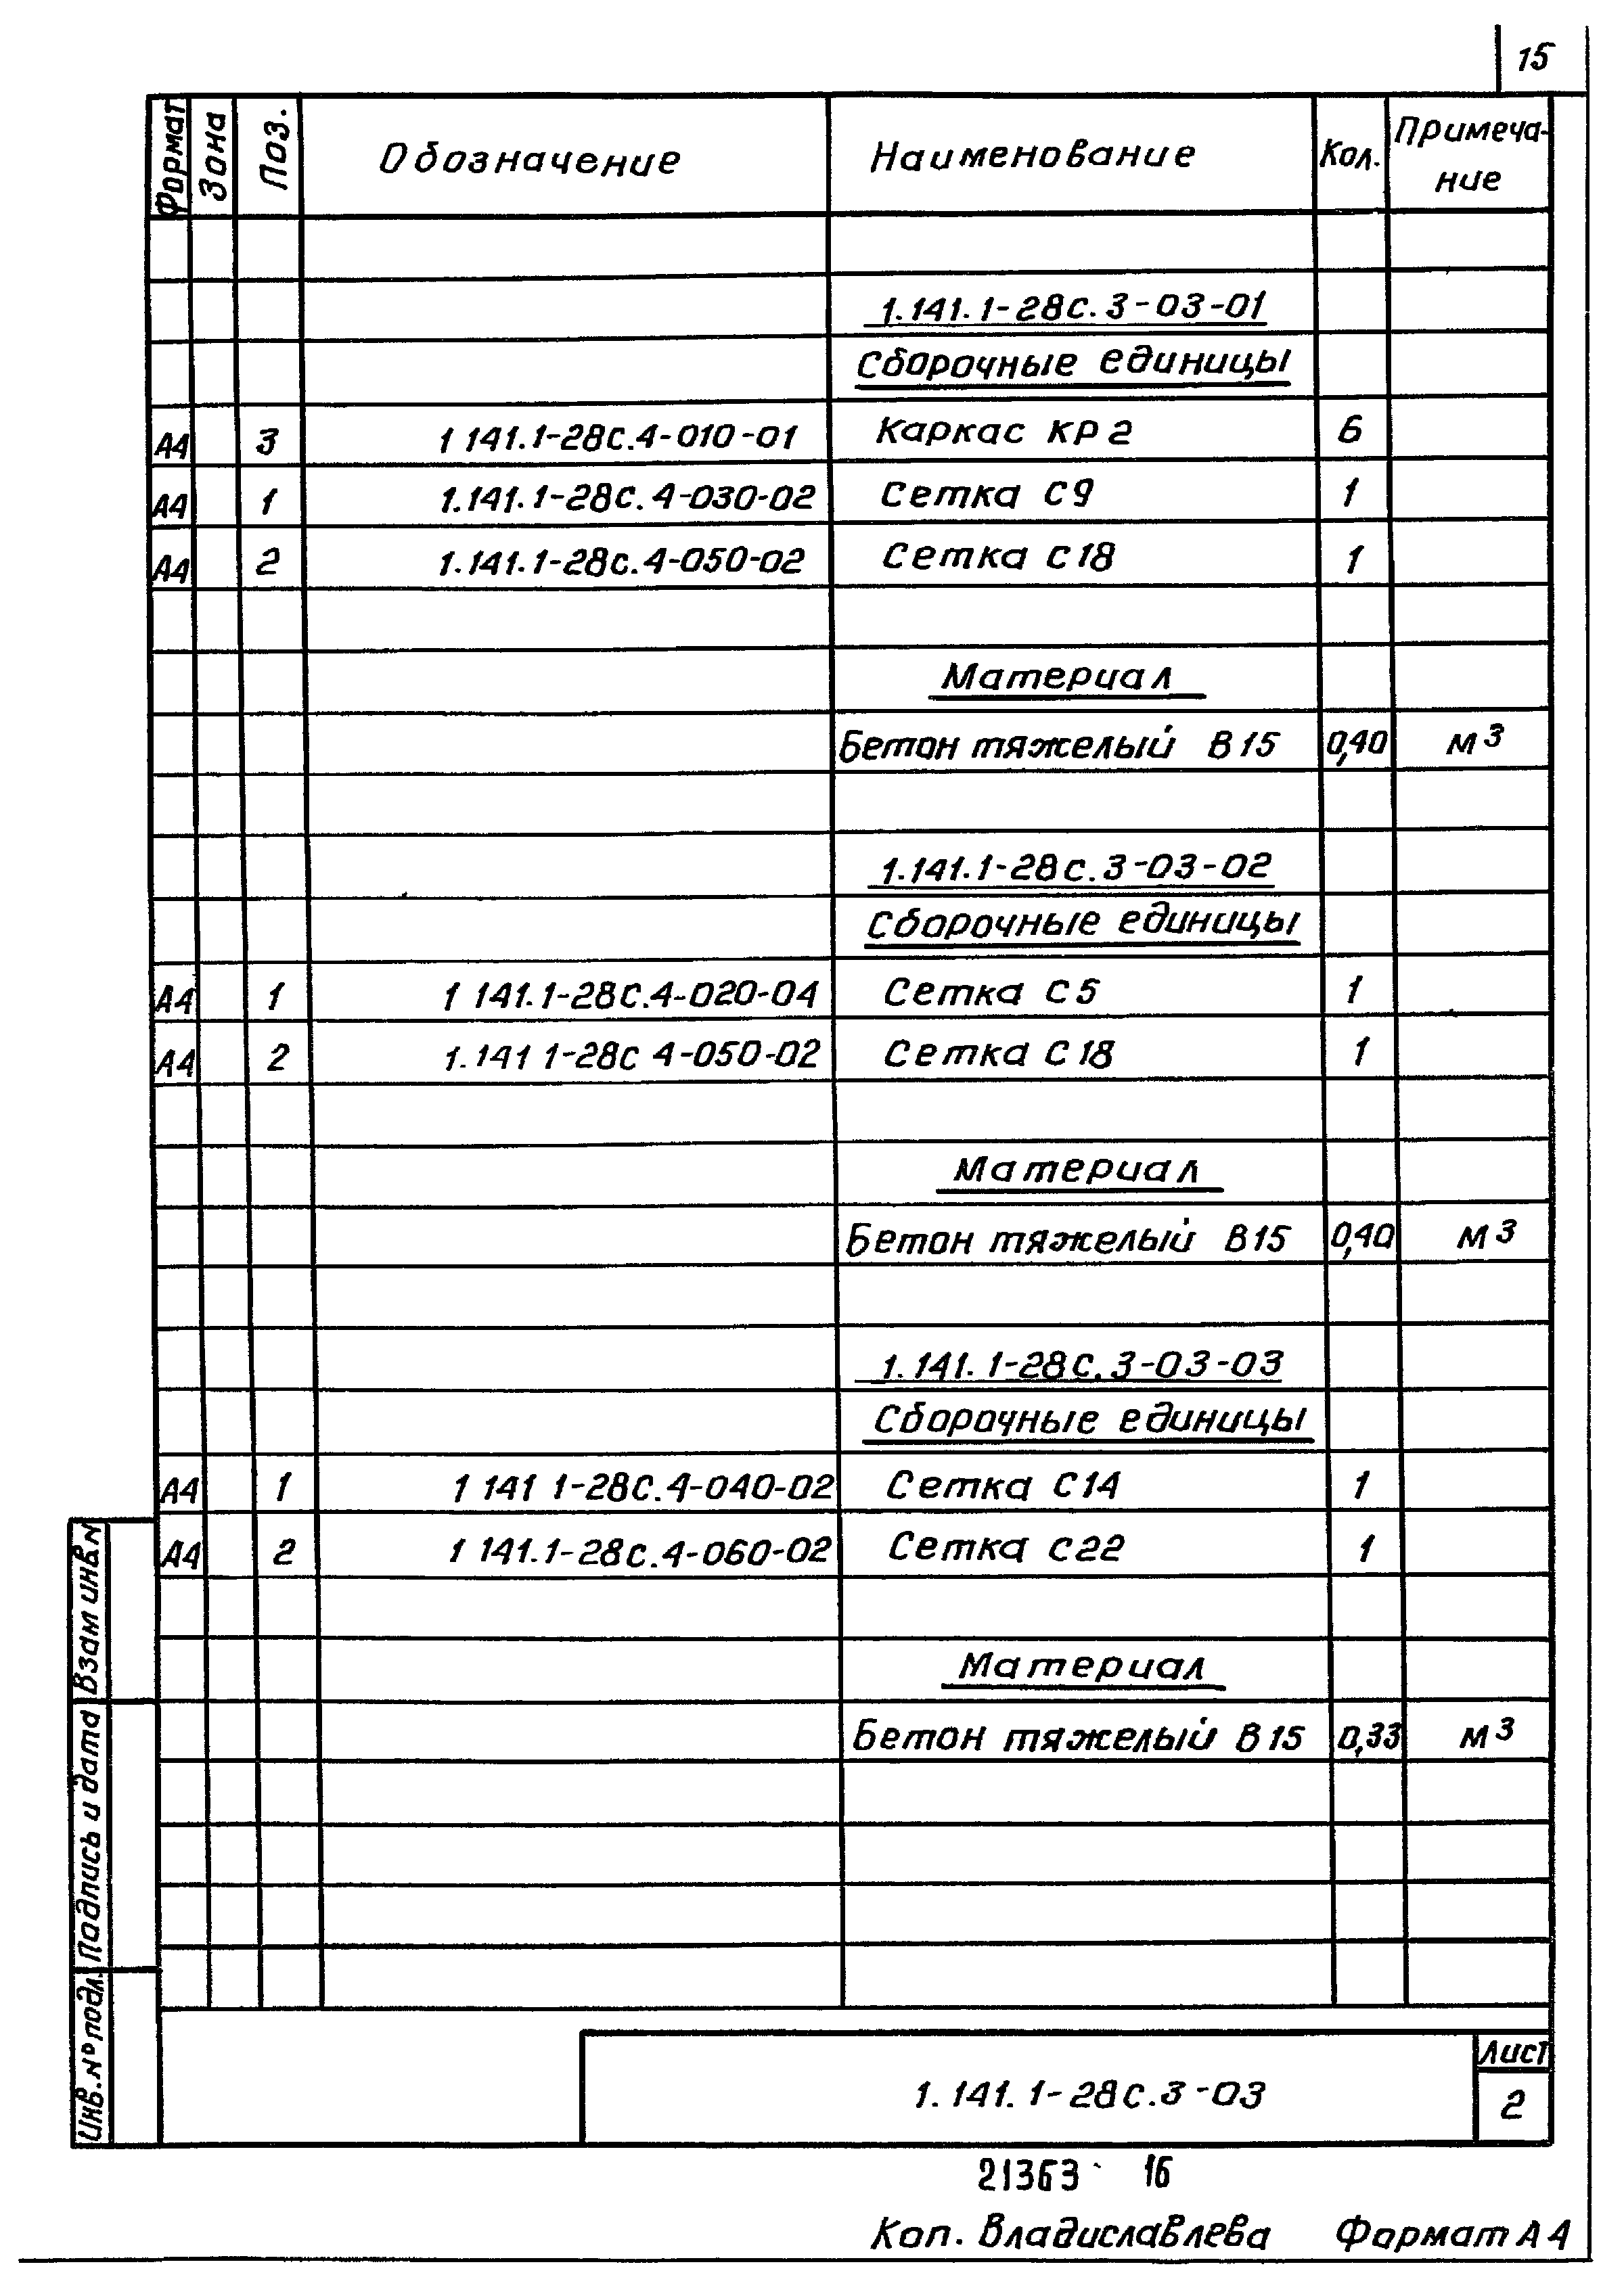 15
Формат Зона Поз. Обозначение Наименование Кол. Примеча-
ние
1.141.1-28с.3-03-01
Сборочные единицы
А4 3 1 141.1-28с.4-010-01 Каркас КР2 6
А4 1 1.141.1-28с.4-030-02 Сетка С9 1
А4 2 1.141.1-28с.4-050-02 Сетка С18 1
Материал
Бетон тяжелый В15 0,40 м3
1.141.1-28с.3-03-02
Сборочные единицы
А4 1 1 141.1-28с.4-020-04 Сетка С5 1
А4 2 1.141 1-28с 4-050-02 Сетка С18 1
Материал
Бетон тяжелый В15 0,40 м3
1.141.1-28с.3-03-03
Сборочные единицы
А4 1 1 141 1-28с.4-040-02 Сетка С14 1
А4 2 1 141.1-28с.4-060-02 Сетка С22 1
Материал
Бетон тяжелый В15 0,33 м3
Взам инв.N
Подпись и дата
Инв.Nº подл.
1.141.1-28с.3-03
Лист
2
21363 16
Коп. Владиславлева Формат А4